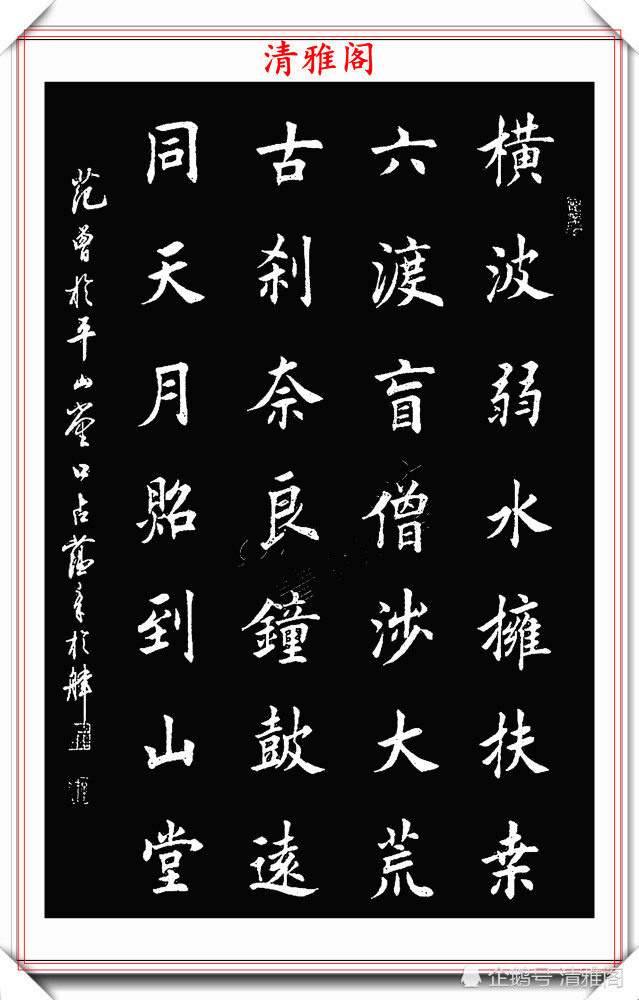 清雅阁
橫波弱水擁扶桒
六渡盲僧涉大荒
古刹奈良鐘鼓遠
同天月照到山堂
范曾於平山堂口占
企鹅号 清雅阁